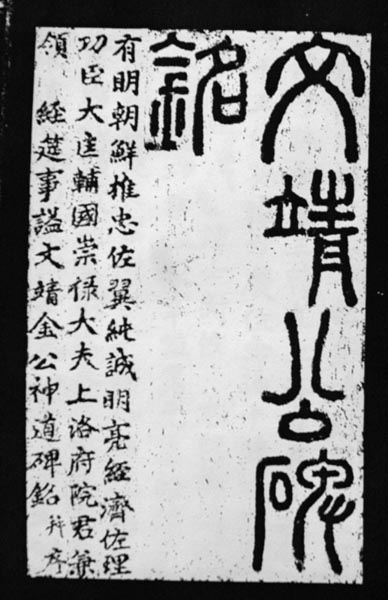 文靖公碑
銘
有明朝鮮推忠佐翼純誠明亮經濟佐理
功臣大匡輔國崇祿大夫上洛府院君兼
領 經筵事謚文靖金公神道碑銘 幷序